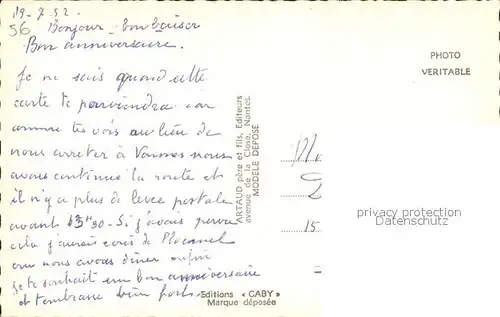 19-7-52.
56 Bonjour - bon baiser
Bon anniversaire.
Je ne sais quand cette
carte te parviendra car
comme tu vois au lieu de
nous arreter à Vannes nous
avons continué la route et
il n'y a plus de levee postale
avant 13H30 - Si j'avais prevu
cela j'aurais ecris de Ploermel
ou nous avons diner enfin
je te souhait un bon anniversaire
et t'embrasse bien fort.
PHOTO
VERITABLE
ARTAUD père et fils, Editeurs
avenue de la Close, Nantes.
MODÈLE DÉPOSÉ
15
privacy protection
Datenschutz
Editions « GABY »
Marque déposée